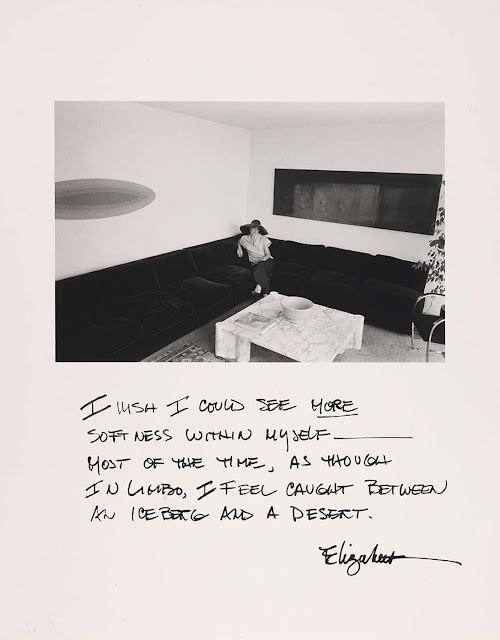 I WISH I COULD SEE MORE
SOFTNESS WITHIN MYSELF——
MOST OF THE TIME, AS THOUGH
IN LIMBO, I FEEL CAUGHT BETWEEN
AN ICEBERG AND A DESERT.
Elizabeth